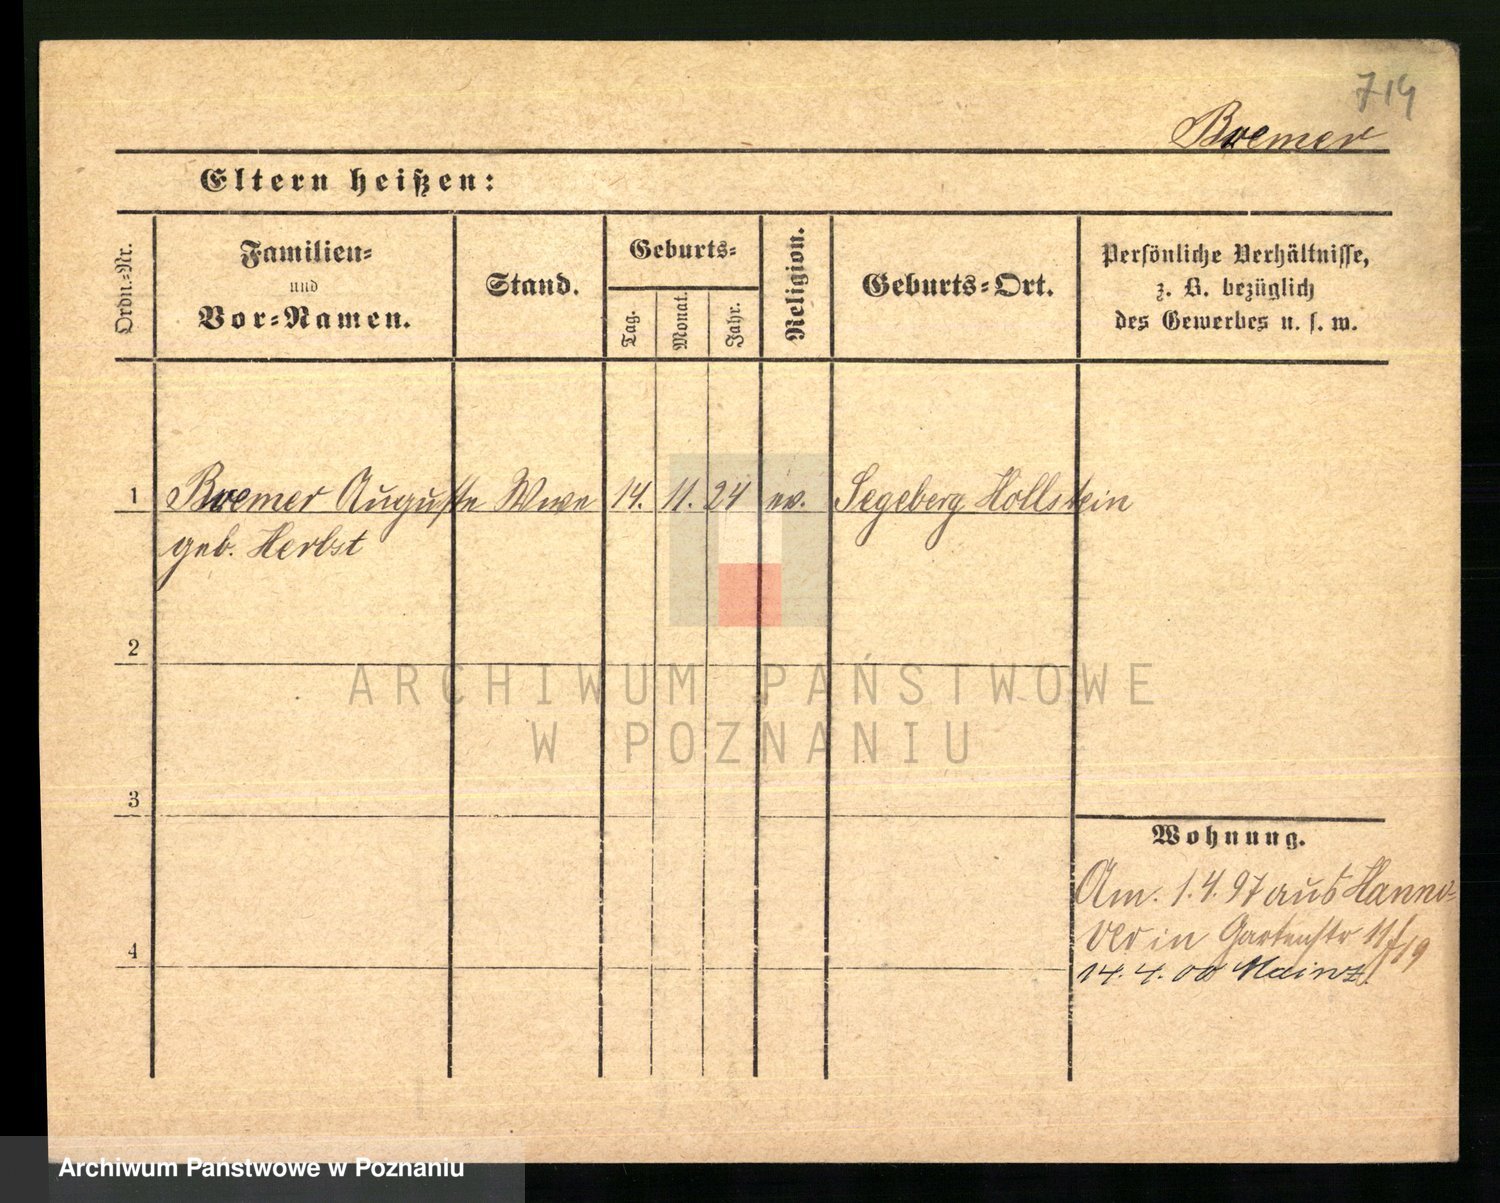 714
Bremer
Eltern heißen:
Ordn.-Nr.
Familien-
und
Vor-Namen.
Stand.
Geburts-
Tag.
Monat.
Jahr.
Religion.
Geburts-Ort.
Persönliche Verhältnisse,
z. B. bezüglich
des Gewerbes u. s. w.
1 Bremer Auguste Wwe 14. 11. 24 ev. Segeberg Hollstein
geb. Herbst
2
ARCHIWUM PAŃSTWOWE
W POZNANIU
3
Wohnung.
Am. 1.4.97 aus Hanno-
ver in Gartenstr 11/
4
14.4.00 Mainz
Archiwum Państwowe w Poznaniu